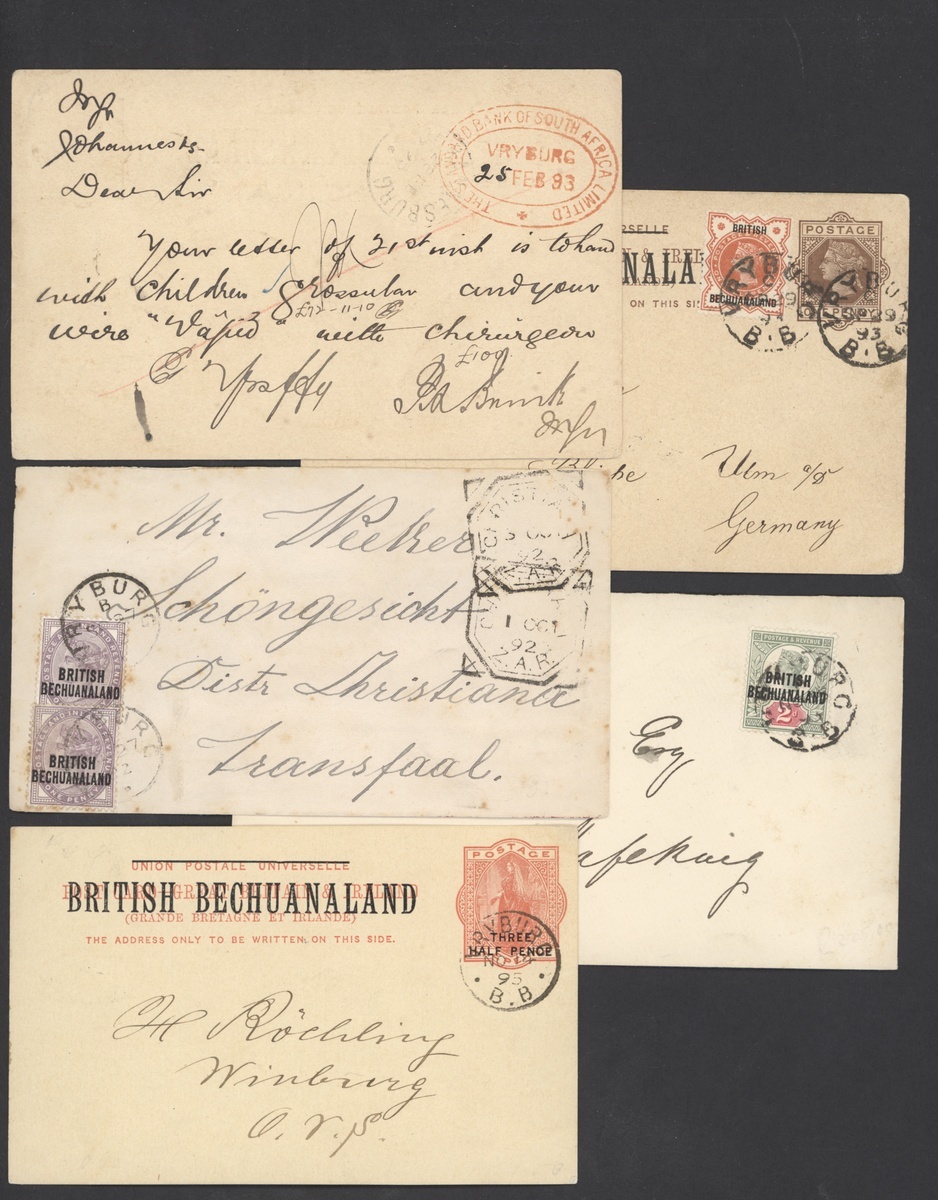 Johannesb.
Dear Sir
THE STANDARD BANK OF SOUTH AFRICA LIMITED
VRYBURG
25 FEB 93
Your letter of 21st inst is to hand
with children Grossular and your
£92-11-10
wire "Vapid" with chirurgeon
£100
BRITISH
BECHUANALAND
POSTAGE
NALA
ON THIS SI
VRYBURG
B.B
VRYBURG
93
B.B
Ulm a/D
Germany
Mr.
Schöngesicht
Distr Christiana
Transfaal.
CHRISTIANA
3 OCT
92
Z.A.R.
1 OCT
92
Z.A.R.
VRYBURG
BRITISH
BECHUANALAND
BRITISH
BECHUANALAND
ONE PENNY
POSTAGE & REVENUE
BRITISH
BECHUANALAND
2d
Esq
Mafeking
UNION POSTALE UNIVERSELLE
POST CARD-GREAT BRITAIN & IRELAND
BRITISH BECHUANALAND
(GRANDE BRETAGNE ET IRLANDE)
THE ADDRESS ONLY TO BE WRITTEN ON THIS SIDE.
POSTAGE
THREE
HALF PENCE
VRYBURG
NO 14
95
B.B
H Röchling
Winburg
O.V.S.